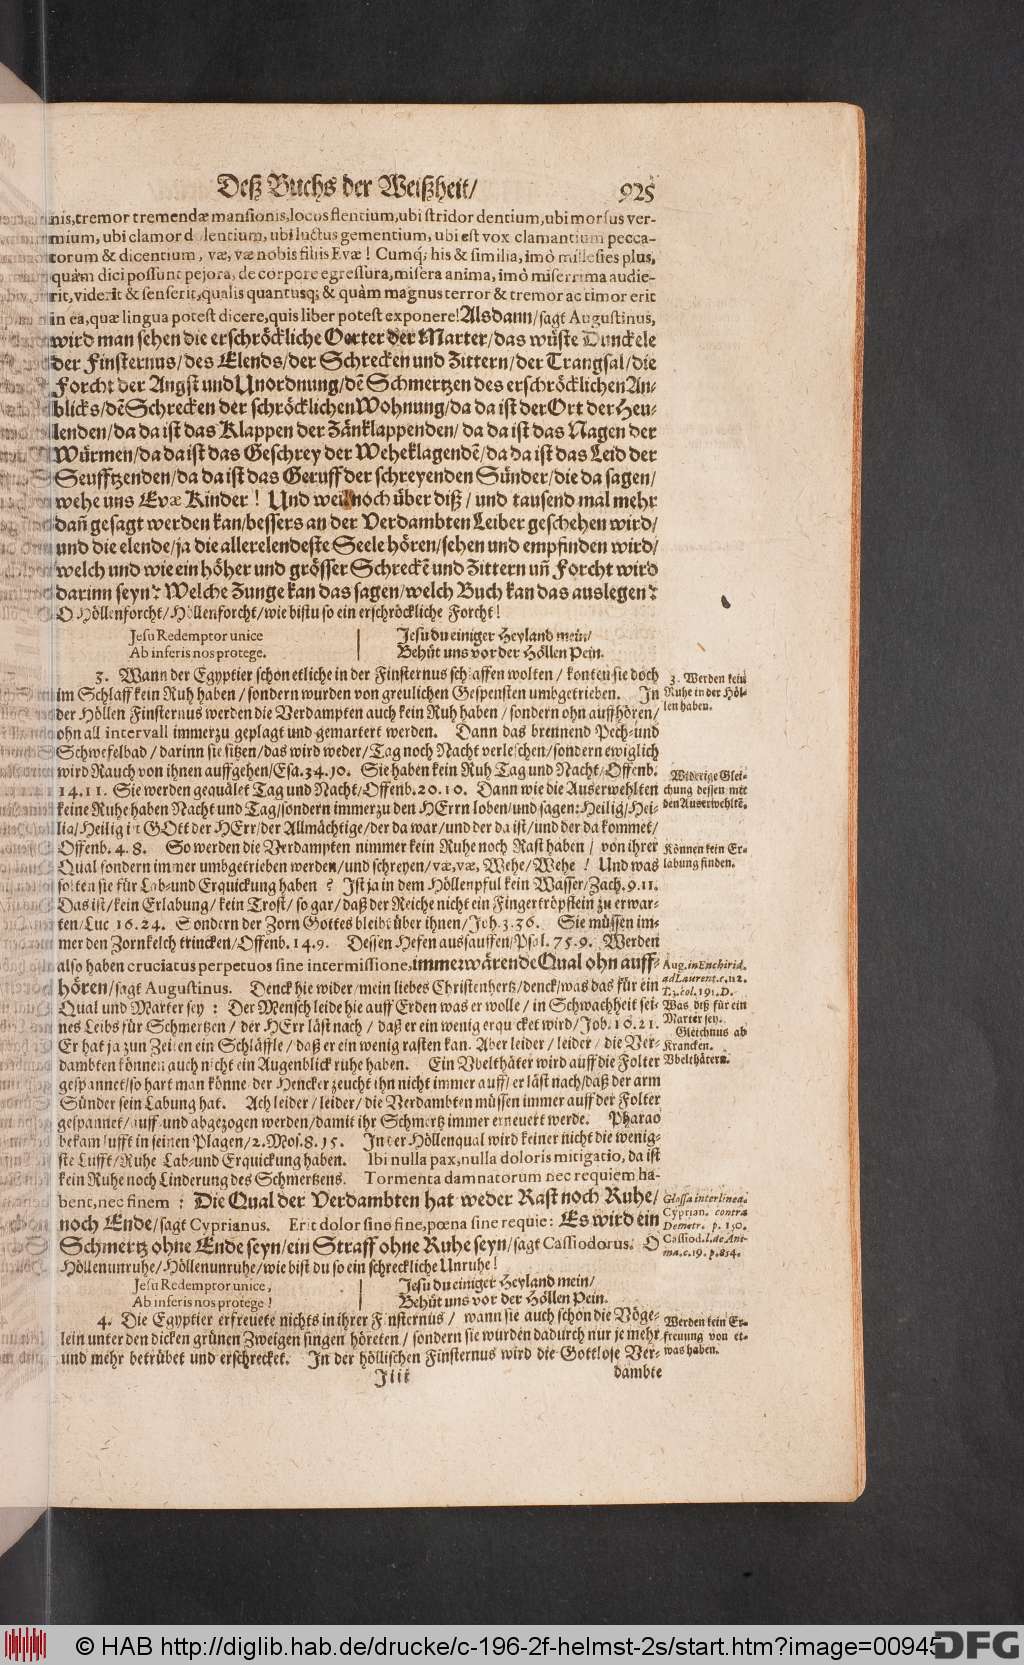 Deß Buchs der Weißheit/ 925
nis, tremor tremendæ mansionis, locus flentium, ubi stridor dentium, ubi morsus ver-
mium, ubi clamor dolentium, ubi luctus gementium, ubi est vox clamantium pecca-
torum & dicentium, væ, væ nobis filiis Evæ! Cumq; his & similia, imò millesies plus,
quàm dici possunt pejora, de corpore egressura, misera anima, imò miserrima audie-
rit, viderit & senserit, qualis quantusq; & quàm magnus terror & tremor ac timor erit
in ea, quæ lingua potest dicere, quis liber potest exponere! Alsdann/ sagt Augustinus,
wird man sehen die erschröckliche Oerter der Marter/ das wüste Dunckele
der Finsternus/ des Elends/ der Schrecken und Zittern/ der Trangsal/ die
Forcht der Angst und Unordnung/ dẽ Schmertzen des erschröcklichen An-
blicks/ dẽ Schrecken der schröcklichen Wohnung/ da da ist der Ort der Heu-
lenden/ da da ist das Klappen der Zänklappenden/ da da ist das Nagen der
Würmen/ da da ist das Geschrey der Weheklagendẽ/ da da ist das Leid der
Seufftzenden/ da da ist das Geruff der schreyenden Sünder/ die da sagen/
wehe uns Evæ Kinder! Und weil noch über diß/ und tausend mal mehr
dañ gesagt werden kan/ bessers an der Verdambten Leiber geschehen wird/
und die elende/ ja die allerelendeste Seele hören/ sehen und empfinden wird/
welch und wie ein höher und grösser Schreckẽ und Zittern uñ Forcht wird
darinn seyn? Welche Zunge kan das sagen/ welch Buch kan das auslegen?
O Höllenforcht/ Höllenforcht/ wie bistu so ein erschröckliche Forcht!
Jesu Redemptor unice
Ab inferis nos protege.
Jesu du einiger Heyland mein/
Behüt uns vor der Höllen Pein.
3. Wann der Egyptier schon etliche in der Finsternus schlaffen wolten/ konten sie doch
im Schlaff kein Ruh haben/ sondern wurden von greulichen Gespensten umbgetrieben. In
der Höllen Finsternus werden die Verdampten auch kein Ruh haben/ sondern ohn auffhören/
ohn all intervall immerzu geplagt und gemartert werden. Dann das brennend Pech-und
Schwefelbad/ darinn sie sitzen/ das wird weder/ Tag noch Nacht verleschen/ sondern ewiglich
wird Rauch von ihnen auffgehen/ Esa. 34. 10. Sie haben kein Ruh Tag und Nacht/ Offenb.
14. 11. Sie werden gequälet Tag und Nacht/ Offenb. 20. 10. Dann wie die Auserwehlten
keine Ruhe haben Nacht und Tag/ sondern immerzu den HErrn loben/ und sagen: Heilig/ Hei-
lig/ Heilig ist GOtt der HErr/ der Allmächtige/ der da war/ und der da ist/ und der da kommet/
Offenb. 4. 8. So werden die Verdampten nimmer kein Ruhe noch Rast haben/ von ihrer
Qual sondern immer umbgetrieben werden/ und schreyen/ væ, væ, Wehe/ Wehe! Und was
solten sie für Lab-und Erquickung haben? Ist ja in dem Höllenpful kein Wasser/ Zach. 9. 11.
Das ist/ kein Erlabung/ kein Trost/ so gar/ daß der Reiche nicht ein Fingertröpflein zu erwar-
ten/ Luc 16. 24. Sondern der Zorn Gottes bleibt über ihnen/ Joh. 3. 36. Sie müssen im-
mer den Zornkelch trincken/ Offenb. 14. 9. Dessen Hefen aussauffen/ Psal. 75. 9. Werden
also haben cruciatus perpetuos sine intermissione, immerwärende Qual ohn auff-
hören/ sagt Augustinus. Denck hie wider/ mein liebes Christenhertz/ denck/ was das für ein
Qual und Marter sey: Der Mensch leide hie auff Erden was er wolle/ in Schwachheit sei-
nes Leibs für Schmertzen/ der HErr läst nach/ daß er ein wenig erquicket wird/ Job. 16. 21.
Er hat ja zun Zeiten ein Schläffle/ daß er ein wenig rasten kan. Aber leider/ leider/ die Ver-
dambten können auch nicht ein Augenblick ruhe haben. Ein Vbelthäter wird auff die Folter
gespannet/ so hart man könne/ der Hencker zeucht ihn nicht immer auff/ er läst nach/ daß der arm
Sünder sein Labung hat. Ach leider/ leider/ die Verdambten müssen immer auff der Folter
gespannet/ auff-und abgezogen werden/ damit ihr Schmertz immer erneuert werde. Pharao
bekam Lufft in seinen Plagen/ 2. Mos. 8. 15. In der Höllenqual wird keiner nicht die wenig-
ste Lufft/ Ruhe Lab-und Erquickung haben. Ibi nulla pax, nulla doloris mitigatio, da ist
kein Ruhe noch Linderung des Schmertzens. Tormenta damnatorum nec requiem ha-
bent, nec finem: Die Qual der Verdambten hat weder Rast noch Ruhe/
noch Ende/ sagt Cyprianus. Erit dolor sine fine, pœna sine requie: Es wird ein
Schmertz ohne Ende seyn/ ein Straff ohne Ruhe seyn/ sagt Cassiodorus. O
Höllenunruhe/ Höllenunruhe/ wie bist du so ein schreckliche Unruhe!
Jesu Redemptor unice,
Ab inferis nos protege!
Jesu du einiger Heyland mein/
Behüt uns vor der Höllen Pein.
4. Die Egyptier erfreuete nichts in ihrer Finsternus/ wann sie auch schon die Vöge-
lein unter den dicken grünen Zweigen singen höreten/ sondern sie würden dadurch nur je mehr
und mehr betrübet und erschrecket. In der höllischen Finsternus wird die Gottlose Ver-
Iiii dambte
3. Werden kein
Ruhe in der Höl-
len haben.
Widerige Glei-
chung dessen mit
den Auserwehltẽ.
Können kein Er-
labung finden.
Aug. in Enchirid.
ad Laurent. c. 112.
T. 3. col. 191. D.
Was diß für ein
Marter sey.
Gleichnus ab
Krancken.
Vbelthätern.
Glossa interlinea.
Cyprian. contra
Demetr. p. 150.
Cassiod. l. de Ani-
ma, c. 19. p. 854.
Werden kein Er-
freuung von et-
was haben.
© HAB http://diglib.hab.de/drucke/c-196-2f-helmst-2s/start.htm?image=00945
DFG